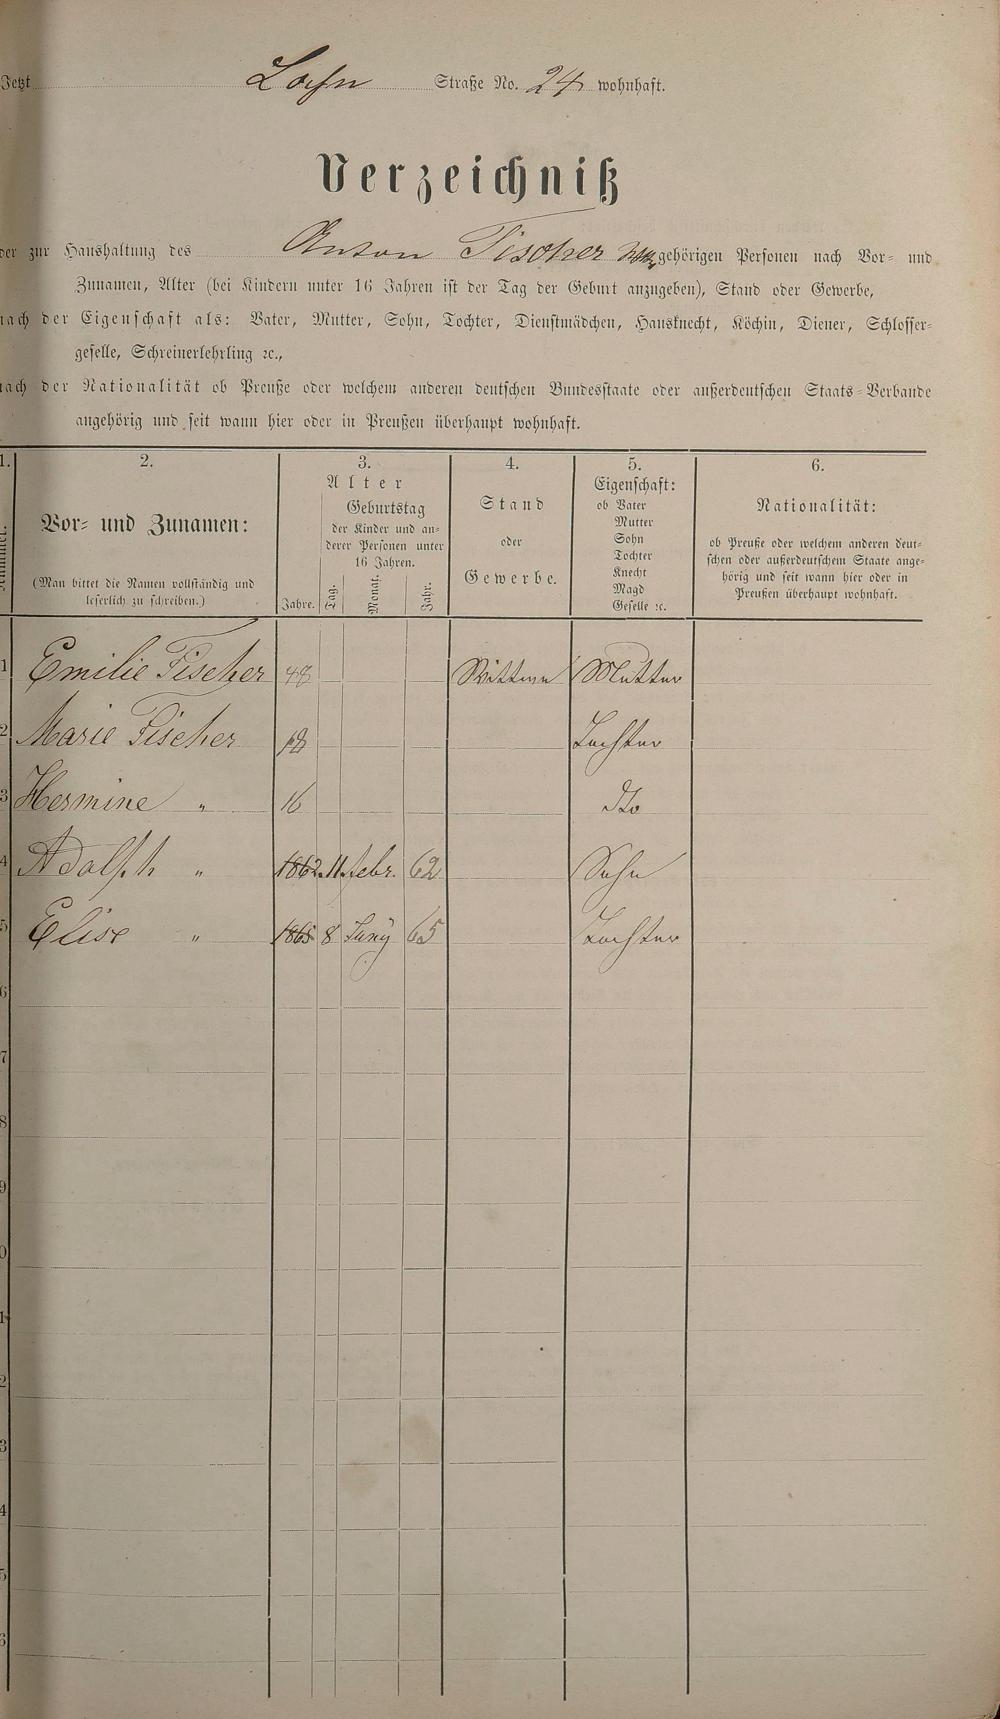 Jetzt Lahn Straße No. 24 wohnhaft.
Verzeichniß
der zur Haushaltung des Anton Fischer Wwe gehörigen Personen nach Vor- und
Zunamen, Alter (bei Kindern unter 16 Jahren ist der Tag der Geburt anzugeben), Stand oder Gewerbe,
nach der Eigenschaft als: Vater, Mutter, Sohn, Tochter, Dienstmädchen, Hausknecht, Köchin, Diener, Schlosser-
geselle, Schreinerlehrling ꝛc.,
nach der Nationalität ob Preuße oder welchem anderen deutschen Bundesstaate oder außerdeutschen Staats-Verbande
angehörig und seit wann hier oder in Preußen überhaupt wohnhaft.
1.
Nummer.
2.
Vor- und Zunamen:
(Man bittet die Namen vollständig und
leserlich zu schreiben.)
3.
Alter
Geburtstag
der Kinder und an-
derer Personen unter
16 Jahren.
Jahre. Tag. Monat. Jahr.
4.
Stand
oder
Gewerbe.
5.
Eigenschaft:
ob Vater
Mutter
Sohn
Tochter
Knecht
Magd
Geselle ꝛc.
6.
Nationalität:
ob Preuße oder welchem anderen deut-
schen oder außerdeutschem Staate ange-
hörig und seit wann hier oder in
Preußen überhaupt wohnhaft.
1 Emilie Fischer 48 Wittwe Mutter
2 Marie Fischer 18 Tochter
3 Hermine " 16 dto
4 Adolph " 1862. 11. febr. 62 Sohn
5 Elise " 1865 8 Juny 65 Tochter
6
7
8
9
0
1
2
3
4
5
6